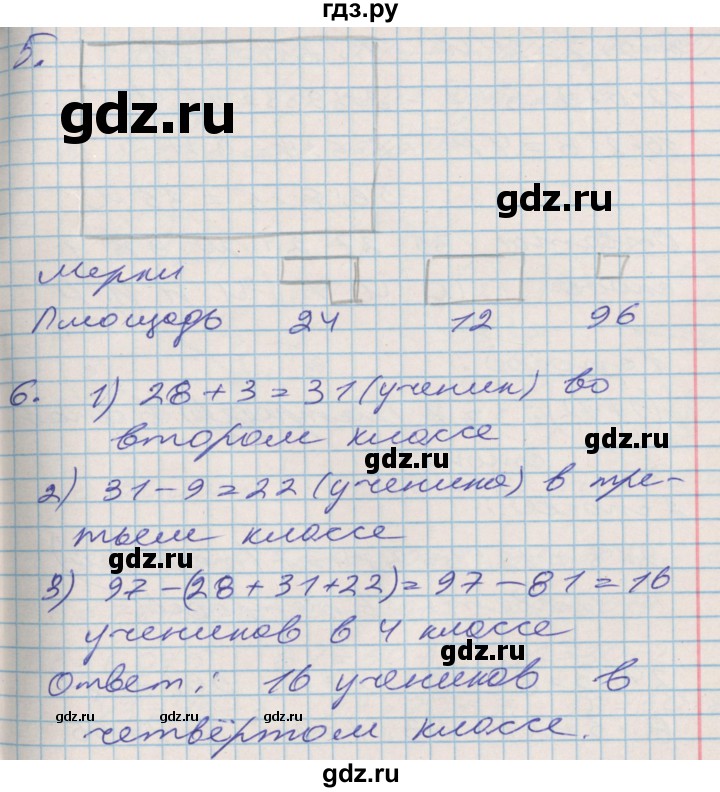 гдз.ру
5.
gdz.ru
gdz.ru
Мерки
Площадь 24 12 96
6. 1) 28 + 3 = 31 (ученик) во
втором классе
gdz.ru
gdz.ru
2) 31 - 9 = 22 (ученика) в тре-
тьем классе
gdz.ru
3) 97 - (28 + 31 + 22) = 97 - 81 = 16
учеников в 4 классе
gdz.ru
Ответ: 16 учеников в
gdz.ru gdz.ru gdz.ru
четвёртом классе.
gdz.ru